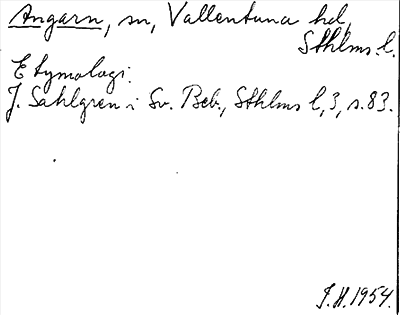 Angarn, sn, Vallentuna hd,
Sthlms l.
Etymologi:
J. Sahlgren i Sv. Beb., Sthlms l, 3, s. 83.
J. H. 1954.